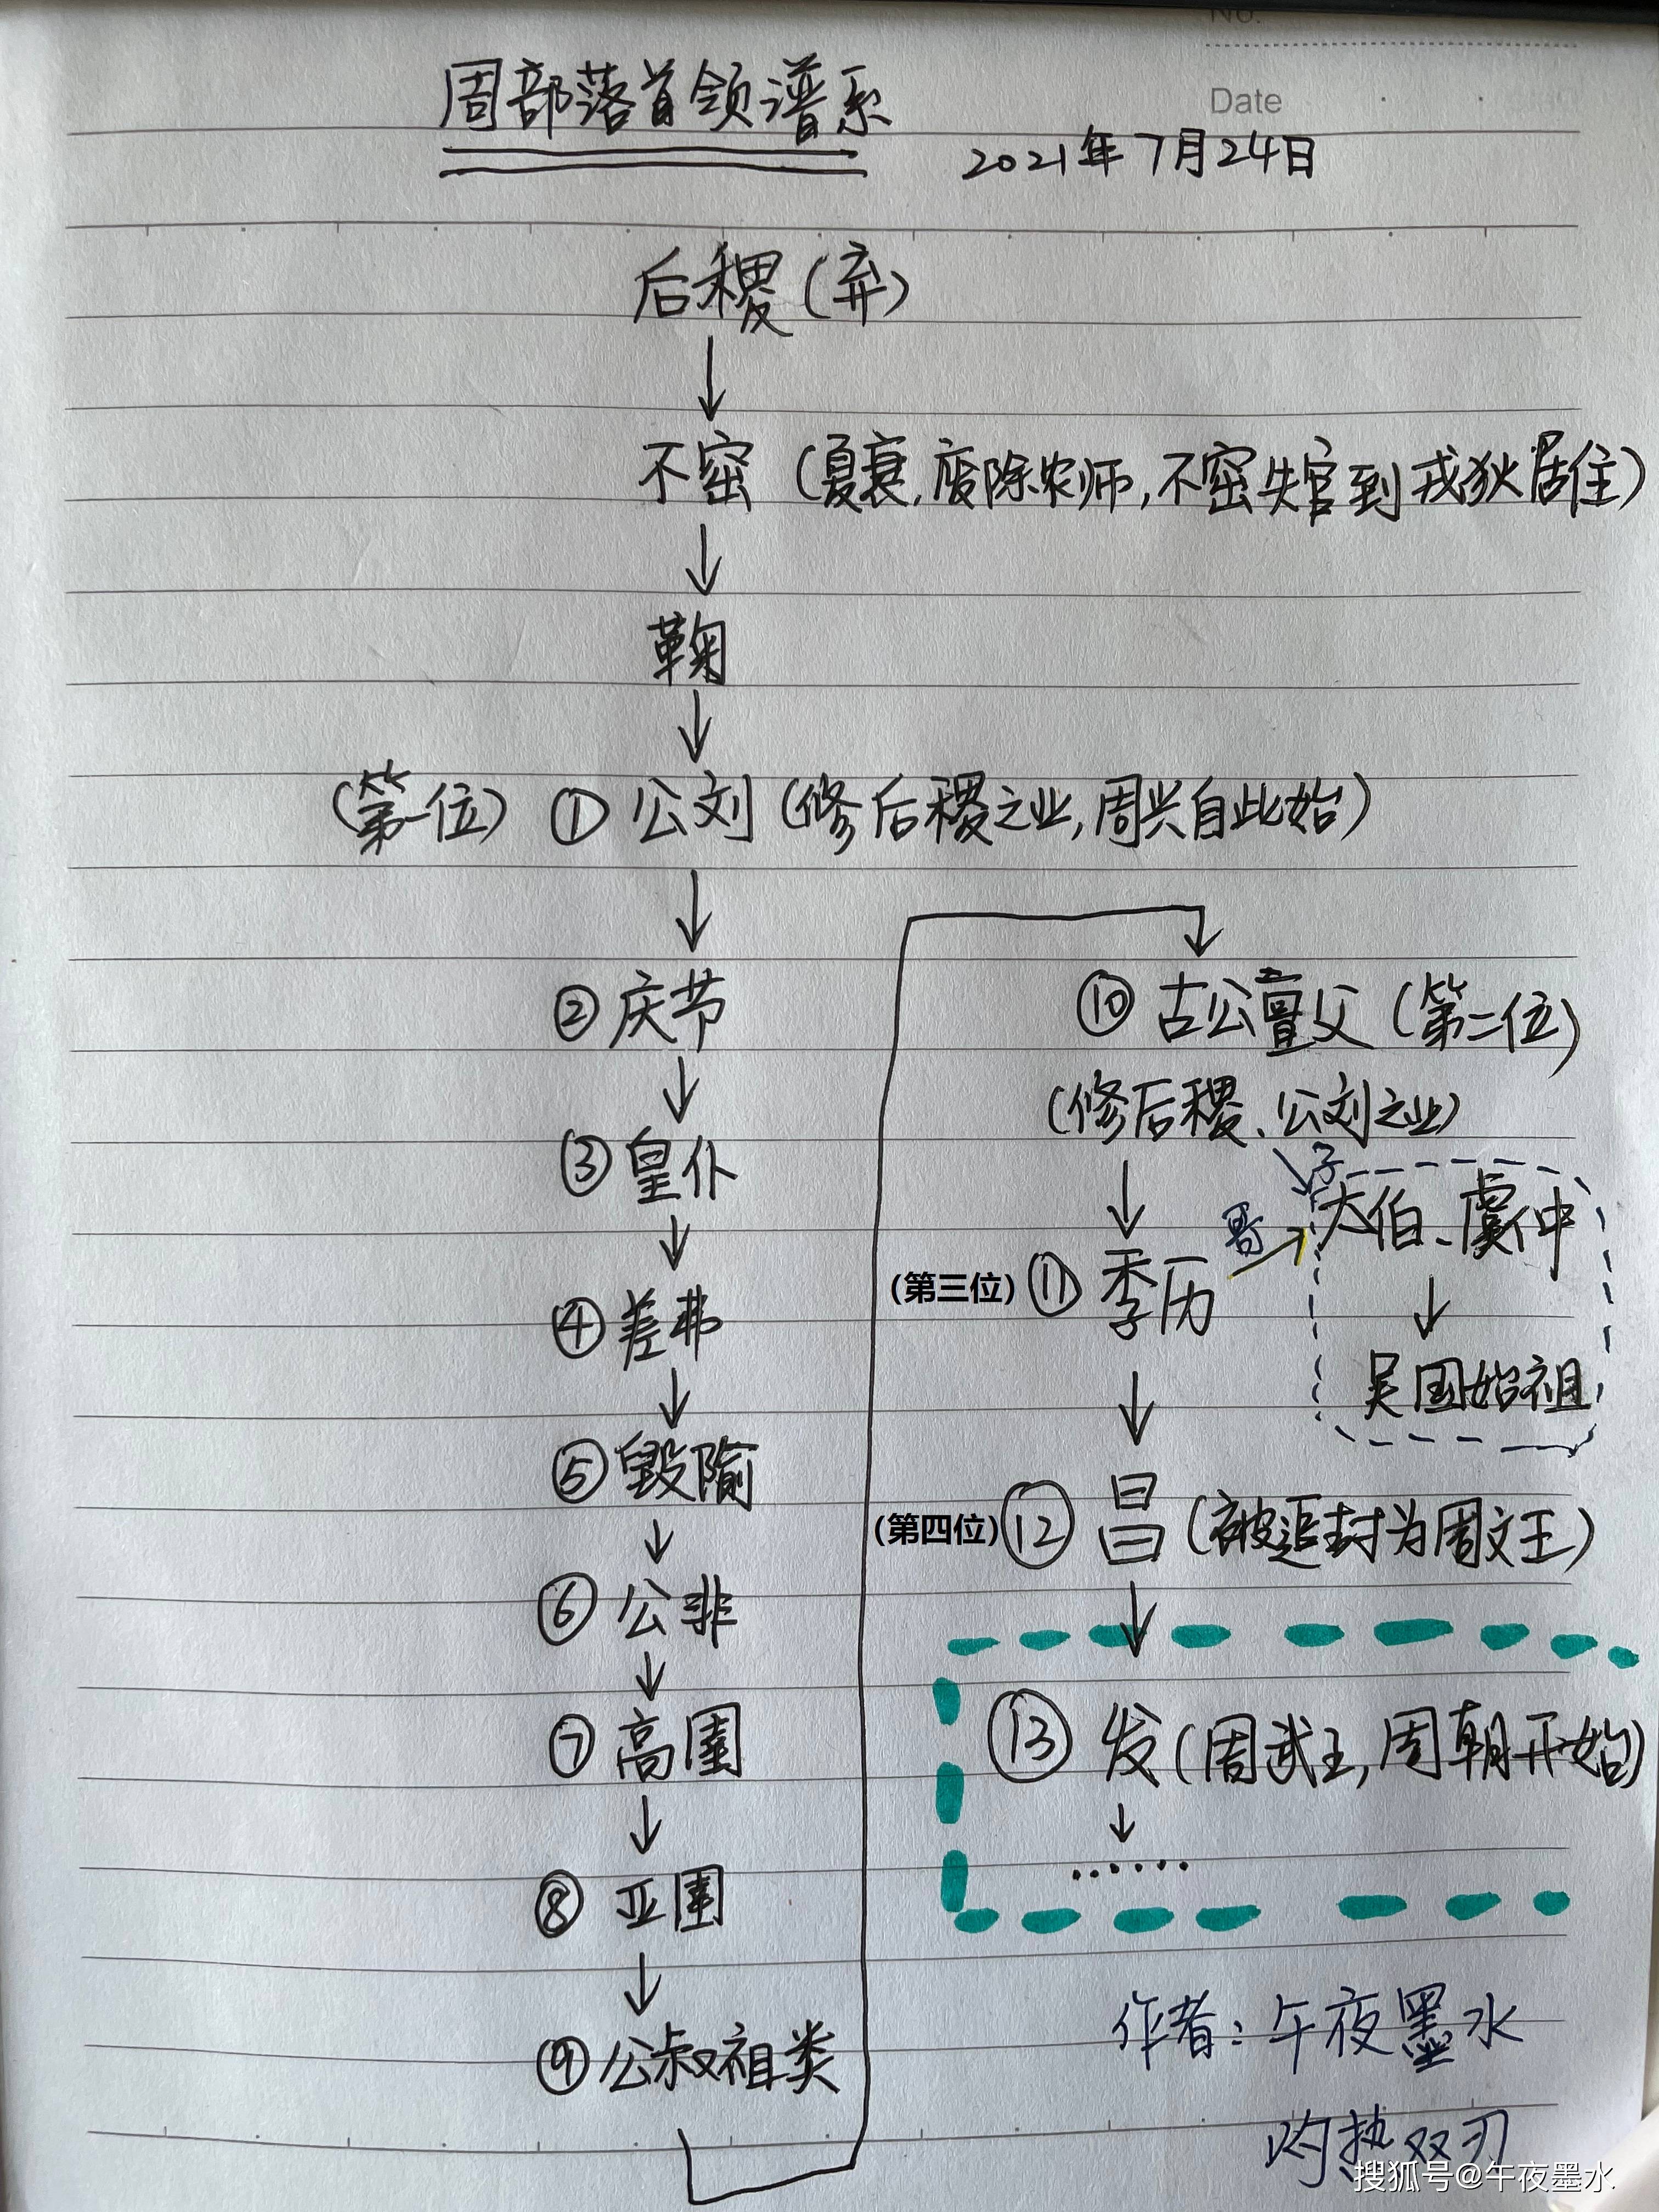 No.
Date
周部落首领谱系
2021年7月24日
后稷(弃)
不密(夏衰,废除农师,不密失官到戎狄居住)
鞠
(第一位)①公刘(修后稷之业,周兴自此始)
②庆节
③皇仆
④差弗
⑤毁隃
⑥公非
⑦高圉
⑧亚圉
⑨公叔祖类
⑩古公亶父(第二位)
(修后稷、公刘之业)
子
太伯、虞仲
哥
(第三位)⑪季历
吴国始祖
(第四位)⑫昌(被追封为周文王)
⑬发(周武王,周朝开始)
......
作者:午夜墨水
灼热双刃
搜狐号@午夜墨水